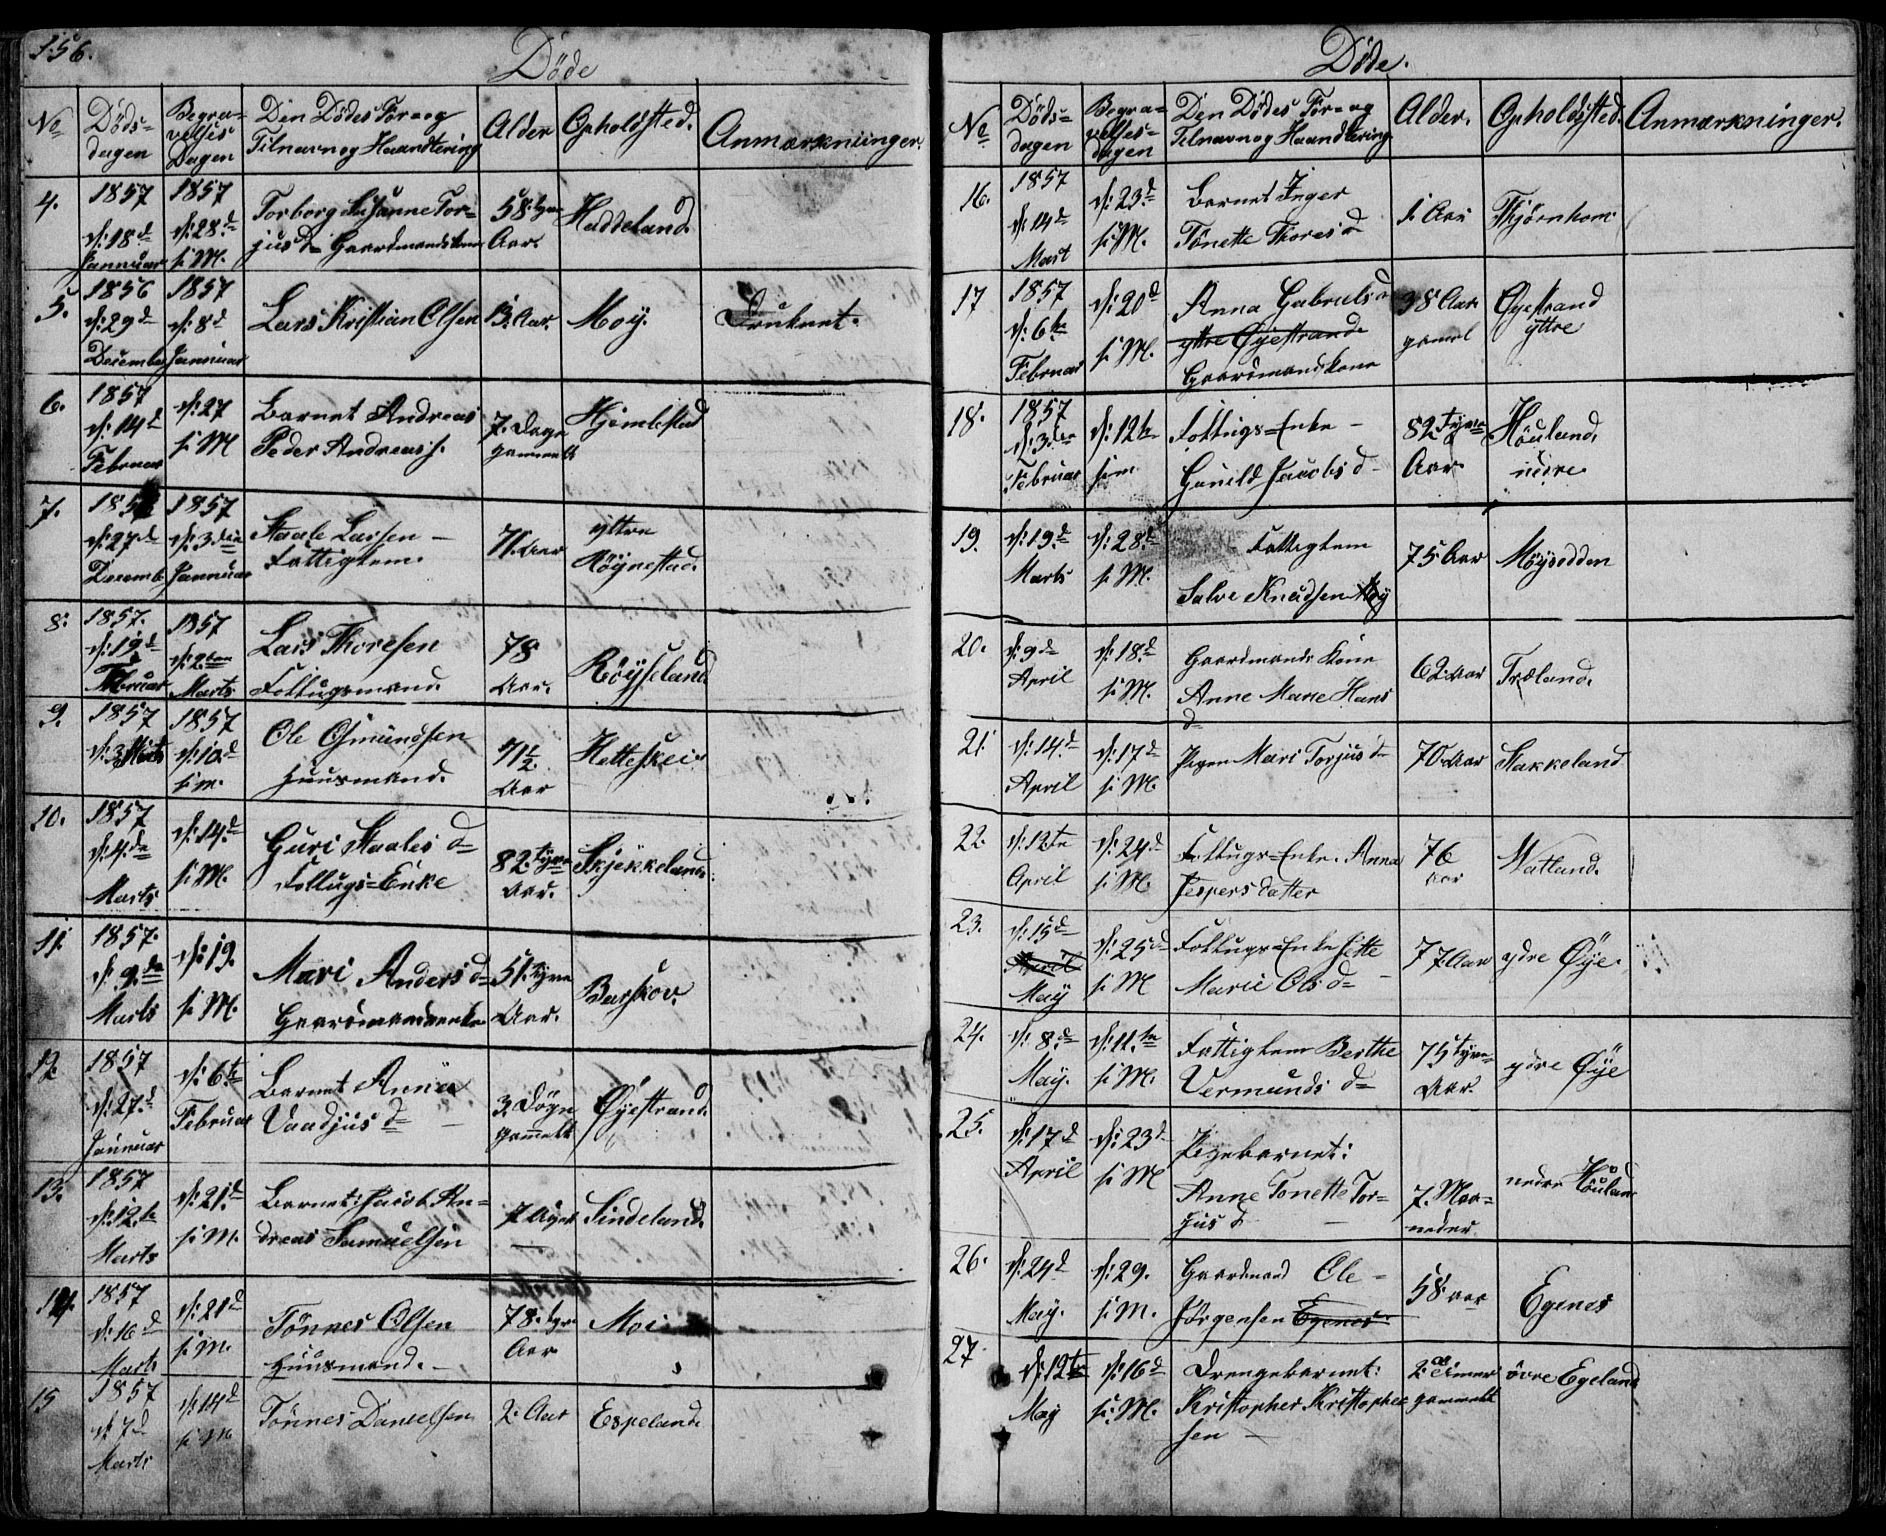 156.
Döde
No
Döds-
dagen
Begra-
velses
Dagen
Den Dödes For-og
Tilnavn og Haandtering
Alder
Opholdsted.
Anmærkninger.
4.
1857
d: 18d
Januuar
1857
d: 28d
s: M.
Torborg Susanne Tor-
jus d Gaardmandskone
58 tyve
Aar.
Haddeland.
5.
1856
d: 29d
December
1857
d: 8d
Januuar
Lars Kristian Olsen
13. Aar.
Moy.
Druknet.
6.
1857
d: 14d
Februar
d: 27
s: M
Barnet Andreas
Peder Andreas s.
7. Dage
gammelt
Hjemlestad
7.
d: 27d
Decemb
1857
d: 3die
Januuar
Staale Larsen -
Fattiglem.
71. Aar
yttre
Röynestad.
8.
1857.
d: 19d
Februar
1857
d: 2den
Marts
Lars Thoresen
Follugsmand.
78
Aar.
Röysseland
9.
1857
d: 3 Marts
1857
d: 10d
s: m.
Ole Osmundsen
Huusmand.
71½
Aar
Hetteskei
10.
1857
d: 4de
Marts
d: 14d
s: M.
Guri Staales d
Follugs=Enke
82. tyve
Aar.
Skjekkeland.
11.
1857.
d: 9de
Marts
d: 19.
s: M.
Mari Anders d
Gaardmandsenke
51. tyve
Aar.
Barskov.
12.
1857
d: 27d
Januuar
d: 6te
Februar
Barnet Anna
Vaadjus d -
3. Dögn
gammelt
Öyestrand.
13.
1857
d: 12te
Marts
d: 21d
s: M.
Barnet: Jacob An-
dreas Samuelsen
7 Uger
Sindeland.
14.
1857
d: 16d
Marts
d: 21d
s: M.
Tönnes Olsen
Huusmand. -
78. tyve
Aar
Moi
15
1857
d: 7d
Marts
d: 14d
s: M
Tönnes Danielsen
2. Aar
Espeland.
Döde.
No
Döds-
dagen
Begra-
velses-
dagen
Den Dödes For- og
Tilnavn og Haandtering
Alder.
Opholdsted.
Anmærkninger.
16.
1857
d: 14d
Mart
d: 23d
s: M.
Barnet Inger
Tönette Thores d
1. Aar
Thjörnhom
17
1857
d: 6te
Februar
d: 20d
s: M.
Anna Gabriels d
yttre Öyestrand
Gaardmandskone
38 Aar
gamel
Öyestrand
yttre
18.
1857
d: 3die
Februar
d: 12te
s: m.
Follugs=Enke -
Gunild Jacobs d -
82 tyve
Aar
Höuland.
nedre.
19.
d: 19d
Marts
d: 28d
s: M.
Fattiglem
Salve Knudsen Moy
75. Aar
Möysodden
20.
d: 9de
April
d: 18d
s: M.
Gaardmands Kone
Anne Marie Hans
d
62. Aar
Træland.
21.
d: 14d
April
d: 17d
s: M.
Pigen Mari Torjus d
70. Aar
Stakkeland
22.
d: 12te
April
d: 24d
s: M.
Follugs=Enke. Anna
Jespersdatter
76
Aar
Watland.
23.
d: 15d
April
May
d: 25d
s: M
Follugs=Enke Jitte
Marie Ols d -
77. Aar
ydre Öÿe.
24.
d: 8de
May.
d: 11te
s: M.
Fattiglem Berthe
Vermunds d
75 tyve
Aar.
ydre Öÿe
25.
d: 17d
April
d: 23d
s: M
Pigebarnet:
Anne Tonette Tor-
jus d -
7. Maa-
neder.
nedre Höuland
26.
d: 24d
May.
d: 29.
s: M.
Gaardmand Ole -
Jörgensen Egenes
58. Aar
Egenes
27
d: 12te
May
d: 16d
s: M.
Drengebarnet:
Kristopher Kristopher
sen -
2. Timer
gammelt
övre Egeland